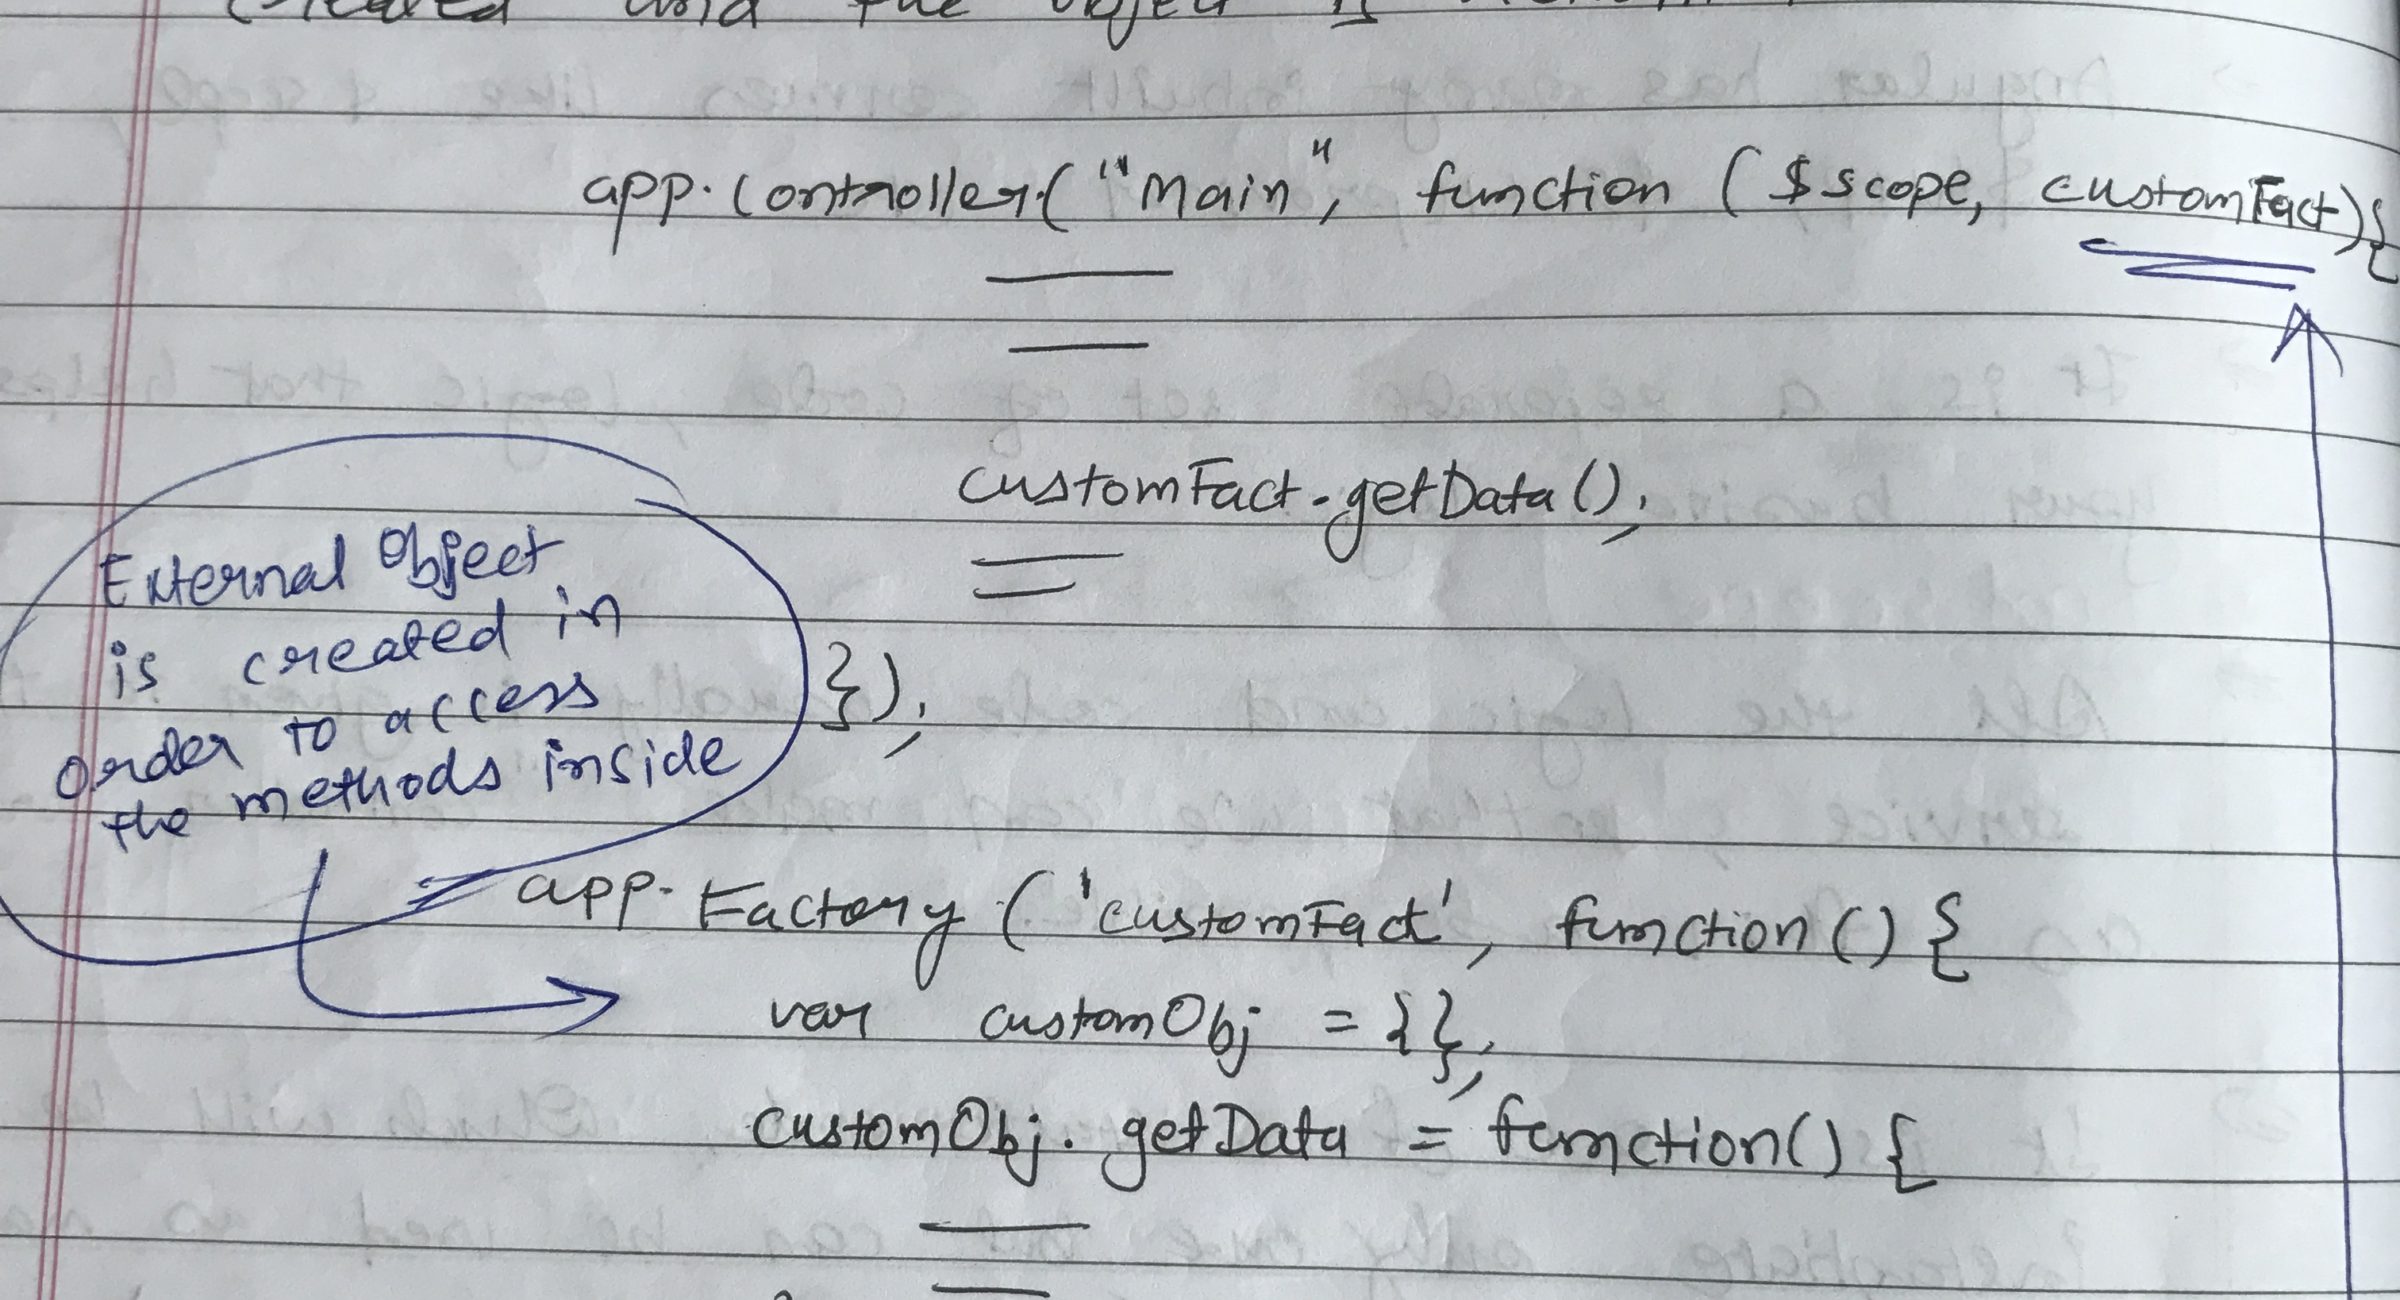 created and the object is
app.controller("Main", function ($scope, customFact){
customFact.getData();
});
External Object
is created in
order to access
the methods inside
app.Factory('customFact', function() {
var customObj = {};
customObj.getData = function() {